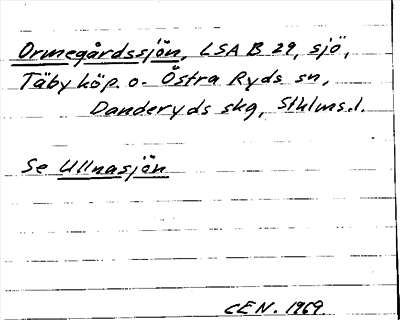 Ormegårdssjön, LSA B 29, sjö,
Täby köp. o. Östra Ryds sn,
Danderyds skg, Sthlms.l.
Se Ullnasjön
CEN. 1969.